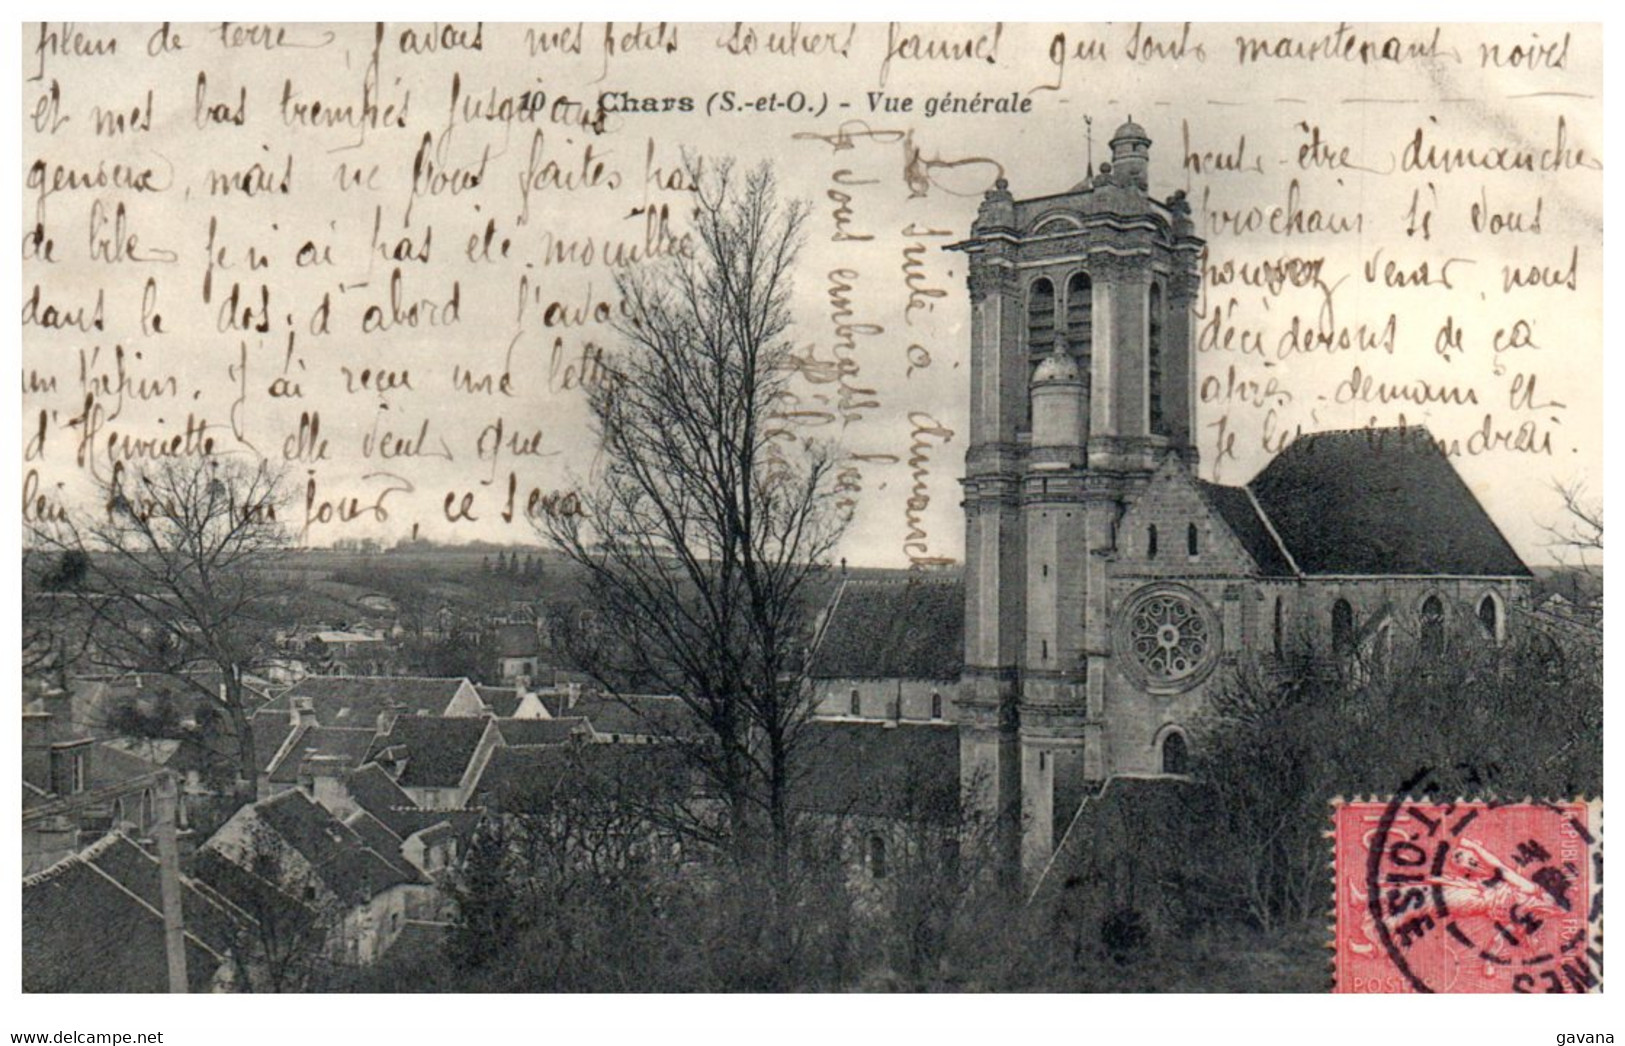 plein de terre, j'avais mes petits souliers jaunes qui sont maintenant noirs
et mes bas trempés jusqu'aux
genoux, mais ne vous faites pas
de bile je n'ai pas été mouillée
dans le dos, d'abord j'avais
un pépin. J'ai reçu une lettre
d'Henriette elle veut que
un jour, ce sera
peut-être dimanche
prochain si vous
pouvez venir, nous
déciderons de ça
après-demain et
je
10 - Chars (S.-et-O.) - Vue générale
La suite à dimanche
Je vous embrasse bien
Hélène
ET-OISE
31
POSTES
10
www.delcampe.net
gavana